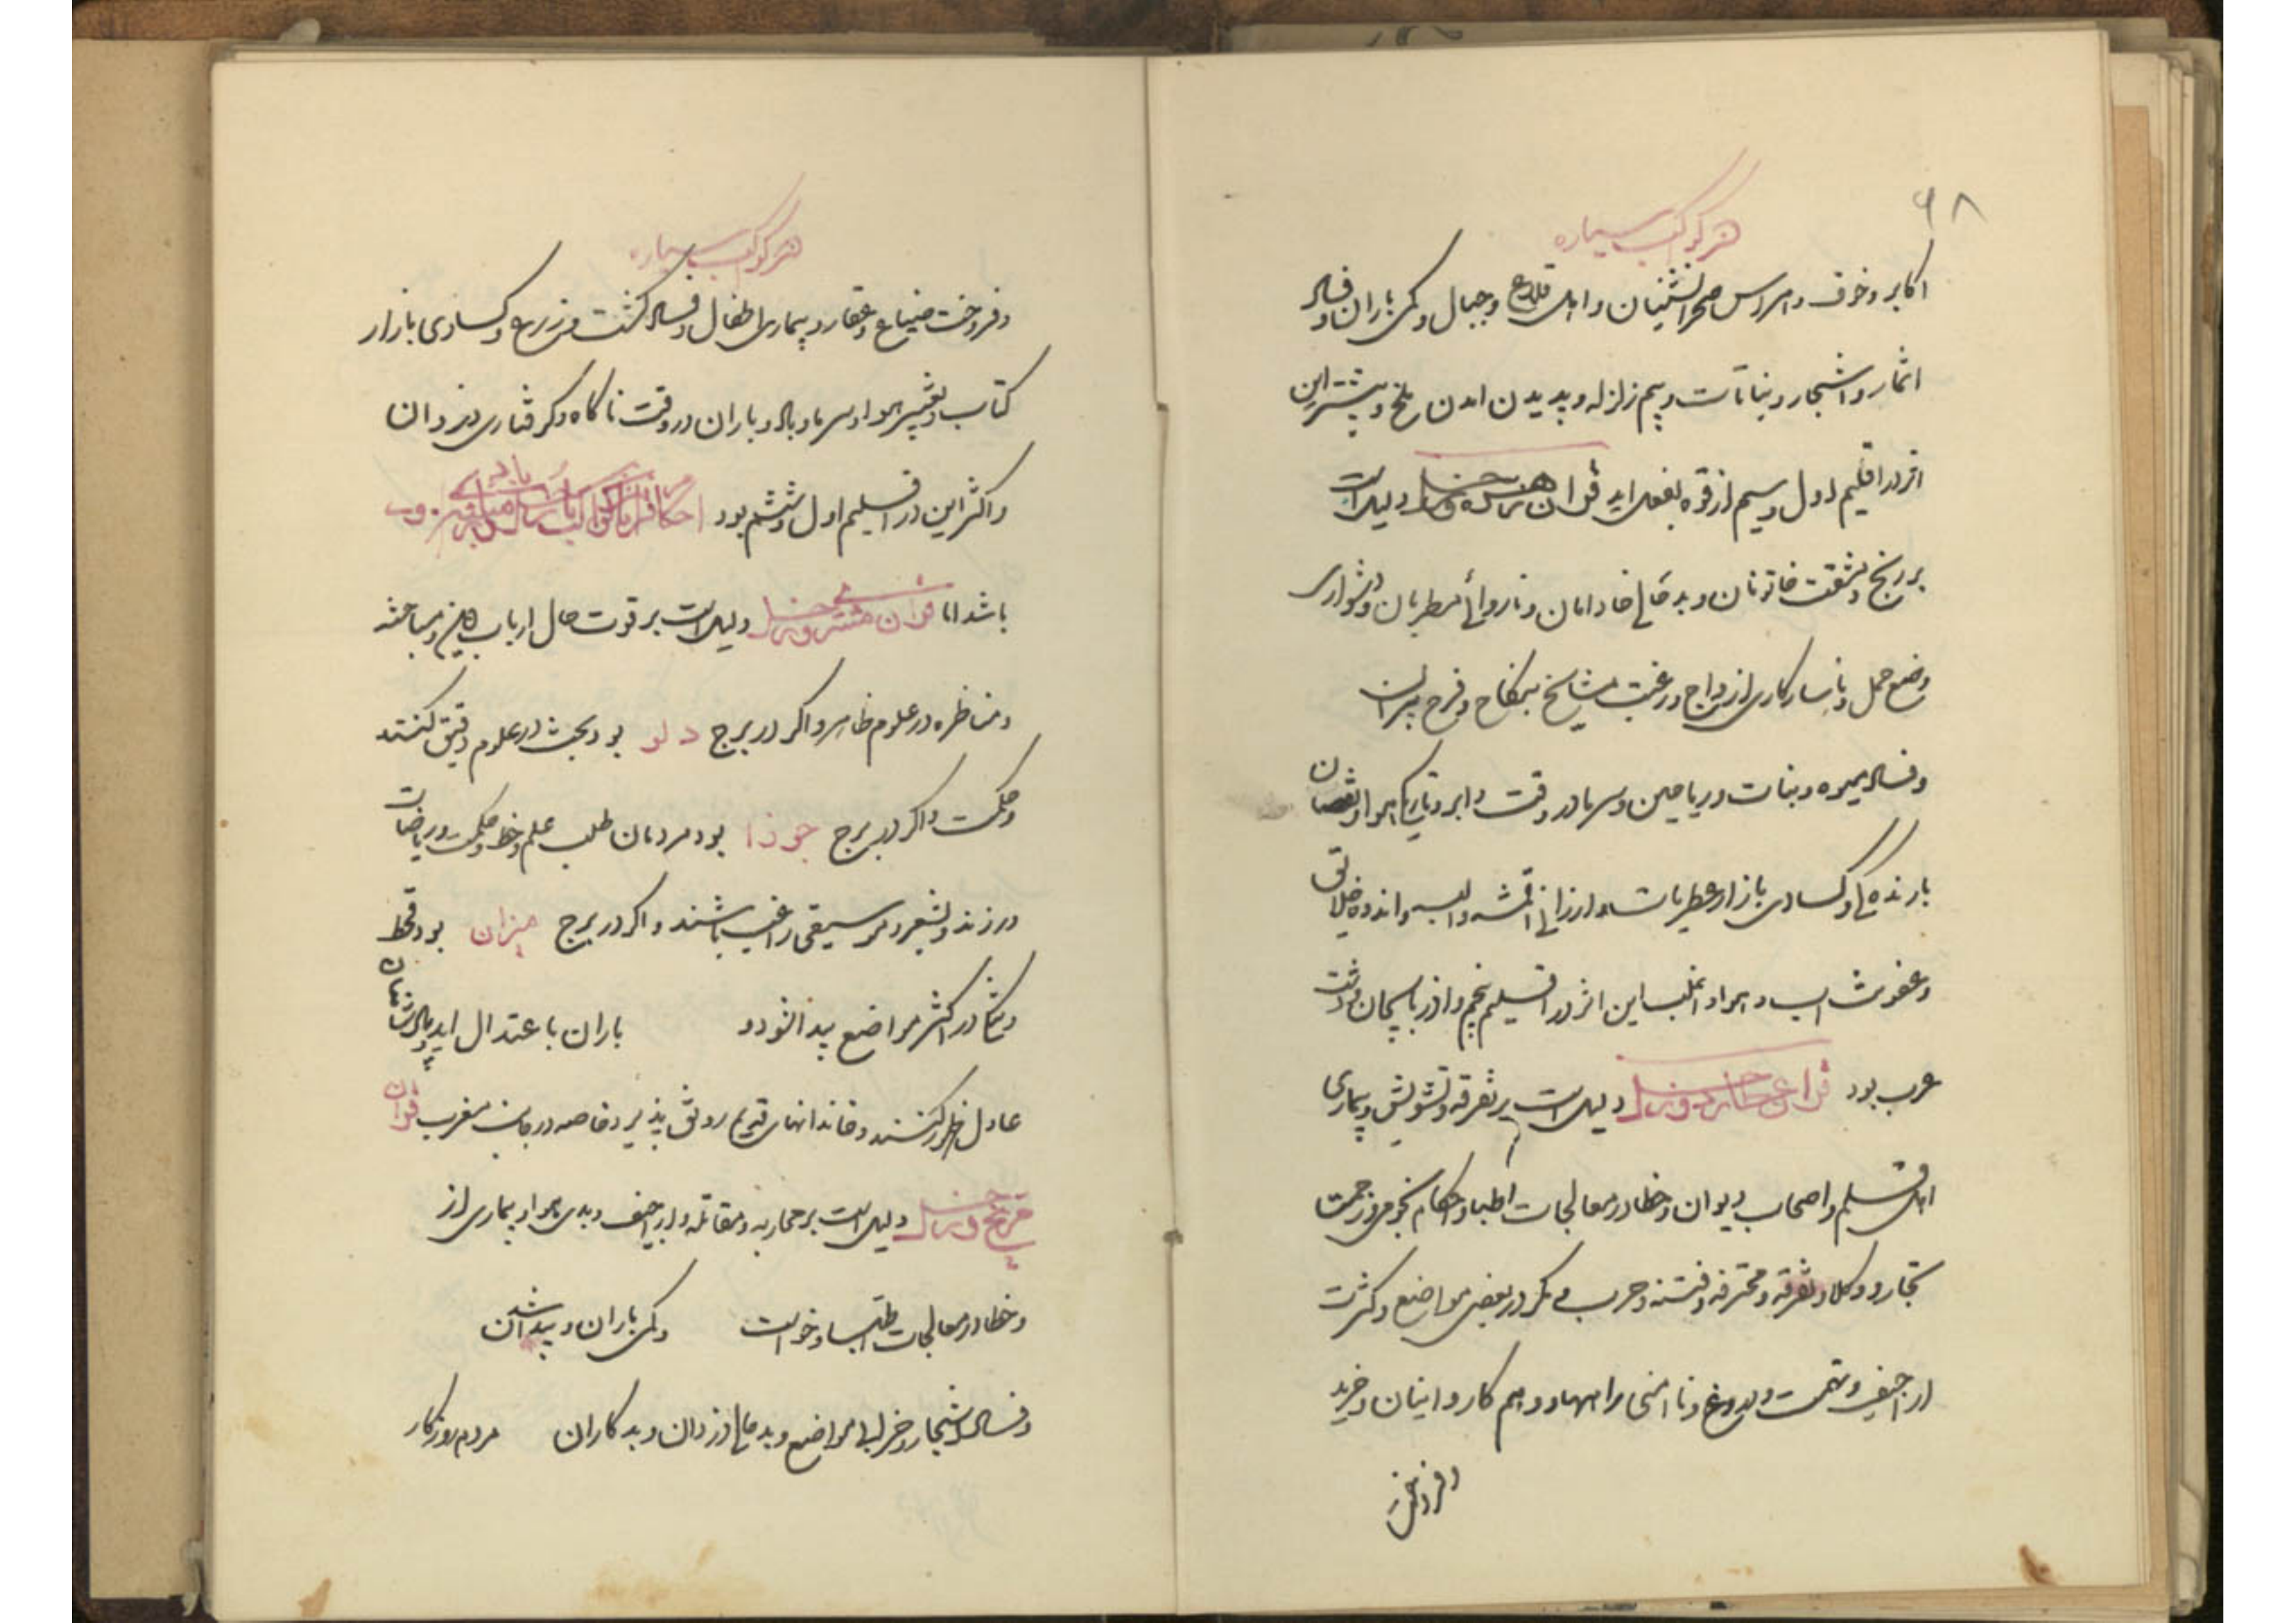 ۶۸
هر کوکب سیاره
اکابر و خوف و هراس صحرانشینان و اهل قلاع و جبال و کمی باران و فساد
اثمار و اشجار و نباتات و بیم زلزله و پدیدن امدن ملخ و بیشتر این
اثر در اقلیم اول و سیم از قوه بفعل اید قران زهره و زحل دلیل است
بر رنج و مشقت خاتونان و بد حالی خادمان و ناروائی مطربان و دشواری
وضع حمل و ناسازکاری ازدواج و رغبت مشایخ بنکاح و فرح پیران
و فساد میوه و نبات و ریاحین و سرما در وقت و ابر و تاریکی هوا و نقصان
بارنده کی و کسادی بازار عطریات و ارزانی اقمشه و البسه و اندوه خلایق
و عفونت اب و هوا و اغلب این اثر در اقلیم پنجم و اذربایجان و دشت
عرب بود قران عطارد و زحل دلیل است بر تفرقه و تشویش و بیماری
اهل قلم و اصحاب دیوان و خطا در معالجات اطبا و احکام نجومی و زحمت
تجار و وکلا و تفرقه و محترفه و فتنه و حرب و مکر در بعضی مواضع و کثرت
اراجیف و تهمت و دروغ و ناامنی راهها و وهم کاروانیان و خرید
و فروخت
هر کوکب سیاره
و فروخت ضیاع و عقار و بیماری اطفال و فساد کشت و زرع و کسادی بازار
کتاب و تغییر هوا و سرما و باد و باران در وقت ناکاه و کرفتاری دزدان
و اکثر این در اقلیم اول و ششم بود احکام قران کواکب با زحل
باشد اما قران مشتری و زحل دلیل است بر قوت حال ارباب دین و مباحثه
و مناظره در علوم ظاهر و اکر در برج دلو بود بحث در علوم دقیق کنند
و حکمت و اکر در برج جوزا بود مردمان طلب علم و خط و حکمت و ریاضات
ورزند و بشعر و موسیقی راغب باشند و اکر در برج میزان بود قحط
و تنکی در اکثر مواضع پیدا شود و باران باعتدال اید و پادشاهان
عادل ظهور کنند و خاندانهای قدیم رونق پذیرد خاصه در جانب مغرب قران
مریخ و زحل دلیل است بر محاربه و مقاتله و اراجیف و بدی هوا و بیماری از
و خطا در معالجات اطبا و خواست و کمی باران و پیدا شدن
و فساد اشجار و خرابی مواضع و بد حالی دزدان و بدکاران مردم روزکار